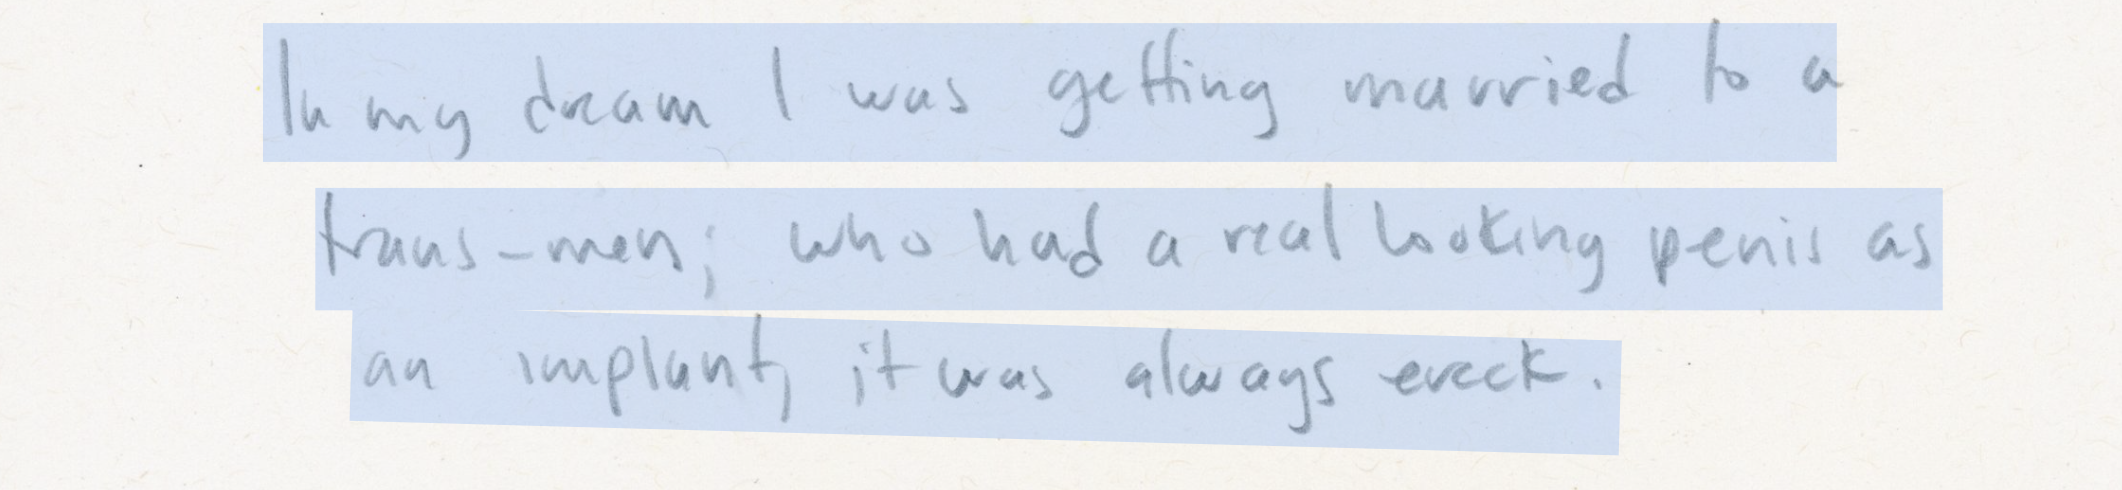 In my dream I was getting married to a
trans-men; who had a real looking penis as
an implant, it was always ereck.